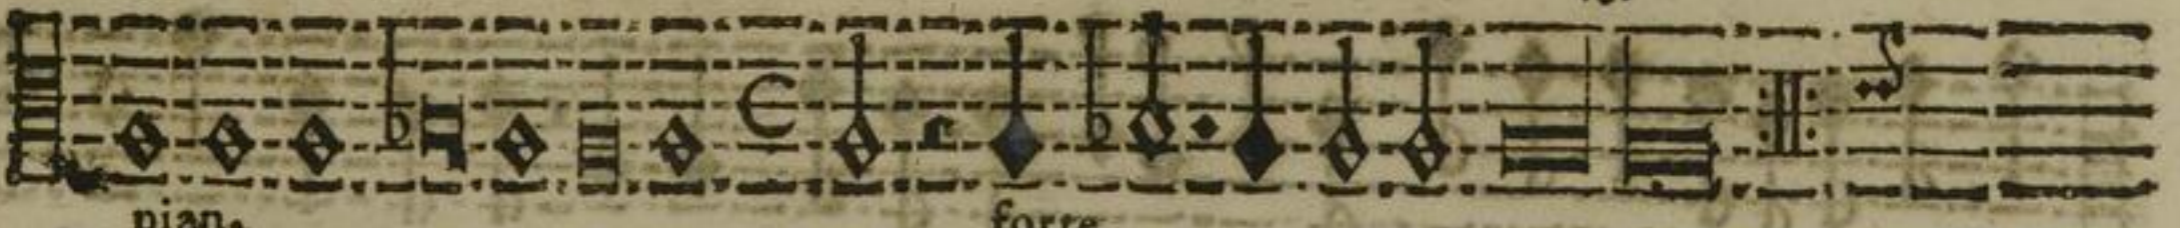 pian. forte